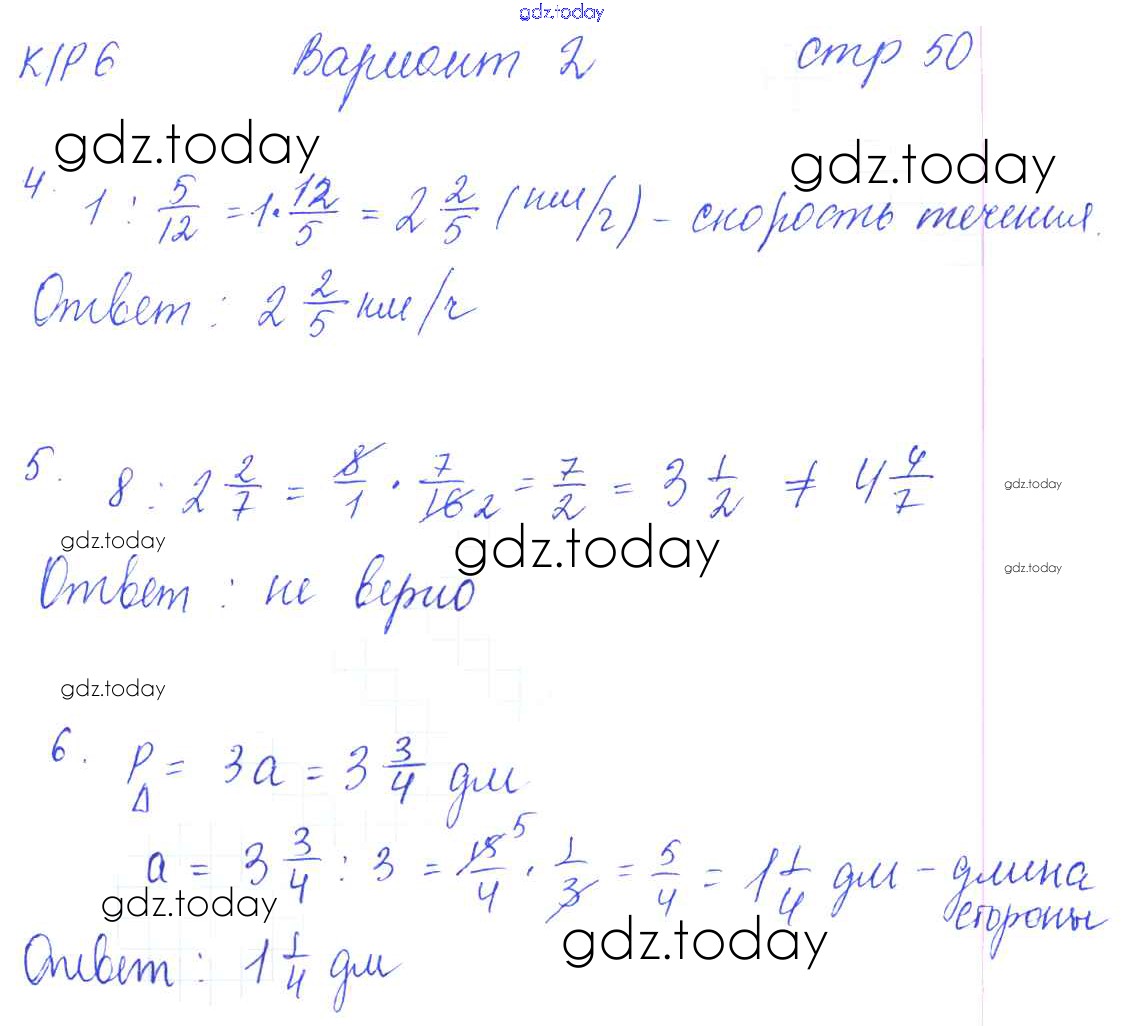 gdz.today
К/Р 6 Вариант 2 стр 50
gdz.today gdz.today
4. 1 : 5/12 = 1 · 12/5 = 2 2/5 (км/ч) – скорость течения.
Ответ : 2 2/5 км/ч
5. 8 : 2 2/7 = 8/1 · 7/16 2 = 7/2 = 3 1/2 ≠ 4 4/7
gdz.today
gdz.today gdz.today
gdz.today
Ответ : не верно
gdz.today
6. P△ = 3a = 3 3/4 дм
a = 3 3/4 : 3 = 15 5/4 · 1/3 = 5/4 = 1 1/4 дм – длина
стороны
gdz.today gdz.today
Ответ : 1 1/4 дм